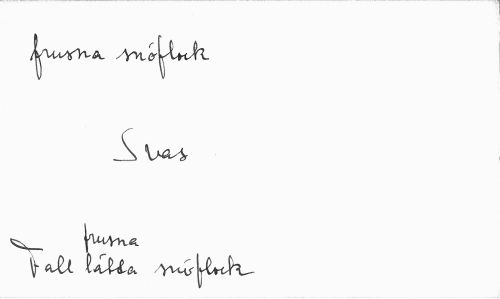 frusna snöflock
Svas
frusna
Fall lätta snöflock